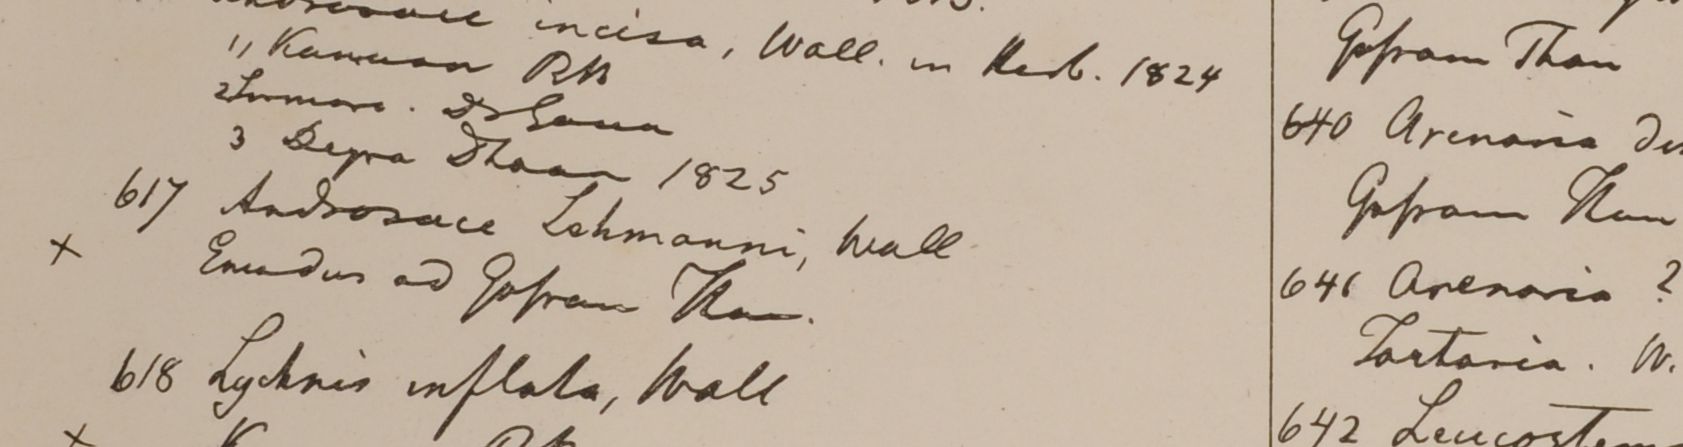 Androsace incisa, Wall. in Herb. 1824
1, Kamaon RB
2 Sirmore. Dr Govan
3 Deyra Dhoon 1825
617 Androsace Lehmanni, Wall
x Emodus ad Gosram Than.
618 Lychnis inflata, Wall
x
Gosram Than
640 Arenaria
Gosram Than
641 Arenaria ?
Tartaria. W.
642